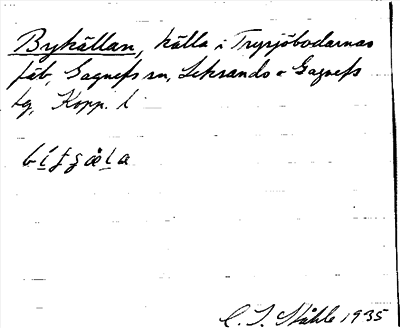 Bykällan, källa i Trysjöbodarnas
fäb, Gagnefs sn, Leksands o Gagnefs
tg, Kopp. l

C. I. Ståhle 1935